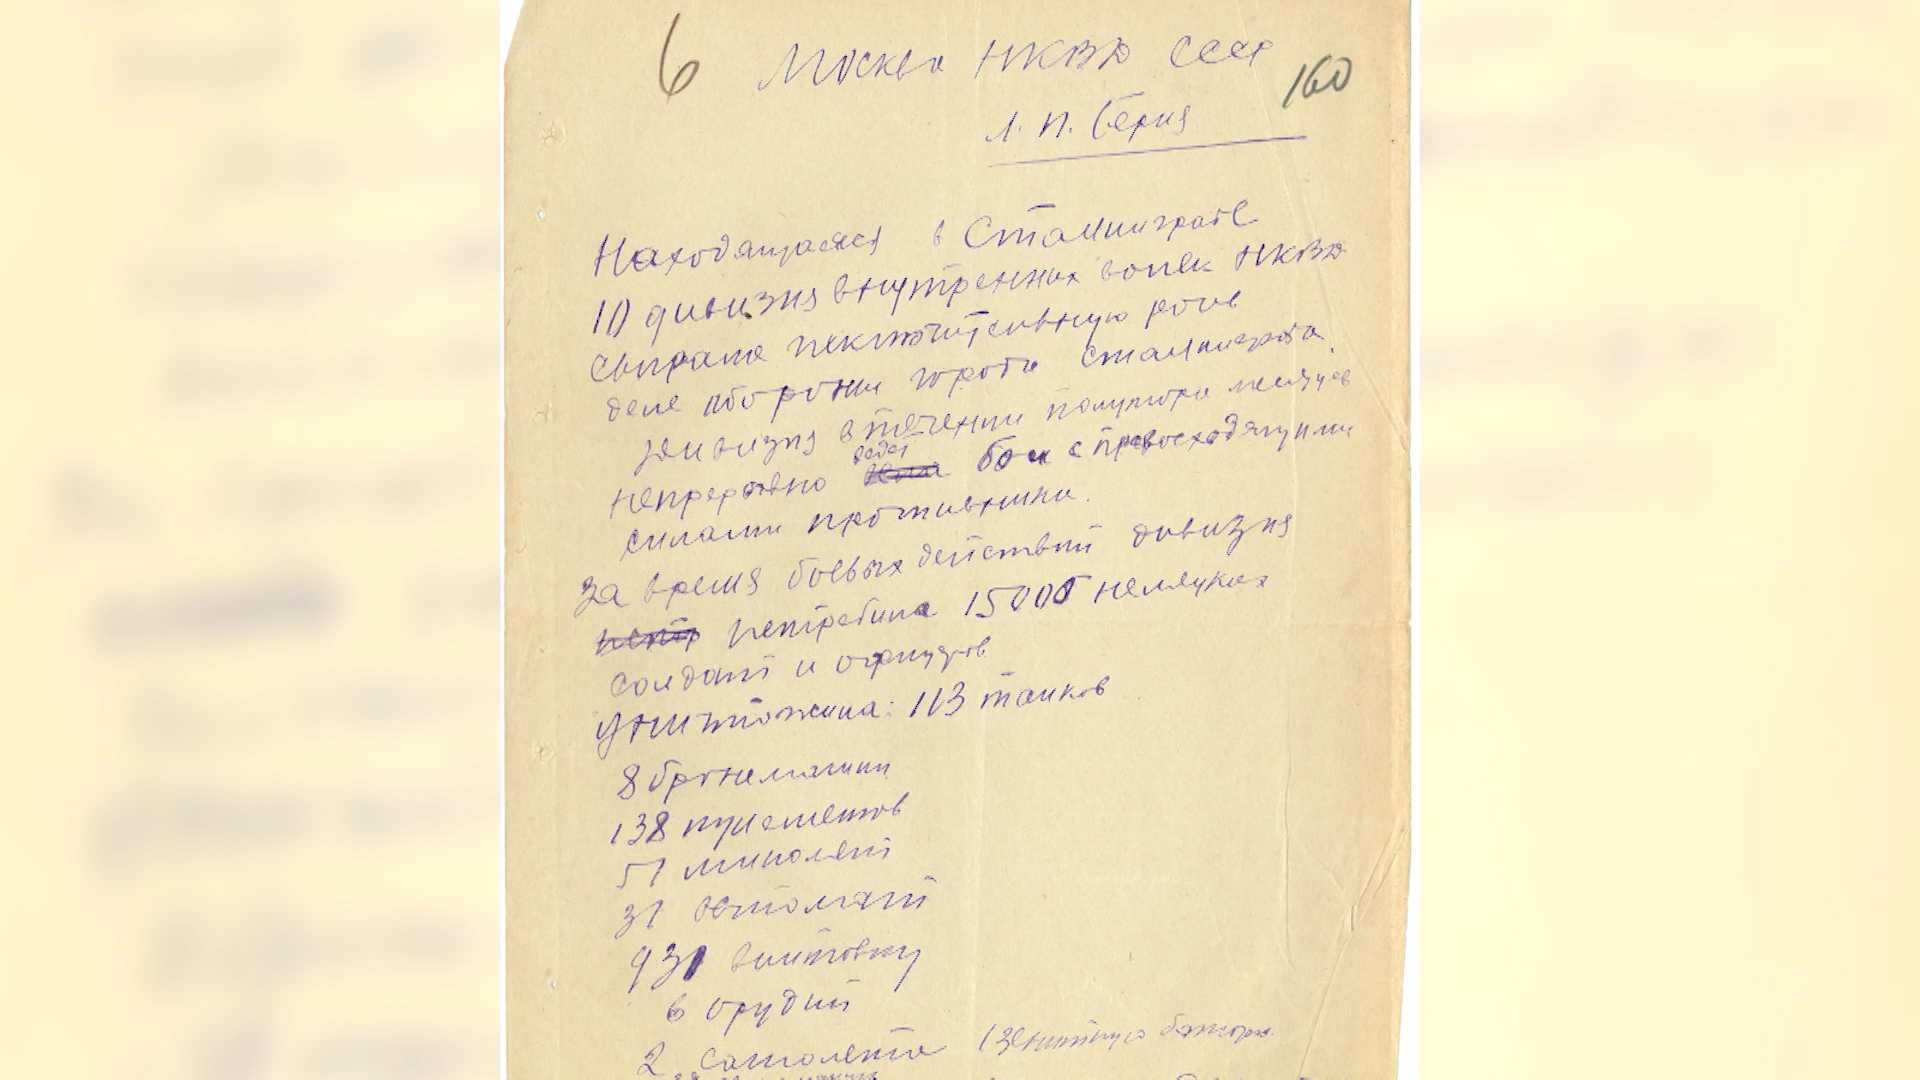 6
Москва НКВД СССР
160
Л. П. Берия
Находящаяся в Сталинграде
10 дивизия внутренних войск НКВД
сыграла исключительную роль
деле обороны города Сталинграда.
Дивизия в течении полутора месяцев
ведет
непрерывно бои с превосходящими
силами противника.
За время боевых действий дивизия
истр истребила 15000 немецких
солдат и офицеров
Уничтожила: 113 танков
8 бронемашин
138 пулеметов
51 миномет
31 автомат
931 винтовку
6 орудий
2 самолета 1 зенитную батарею